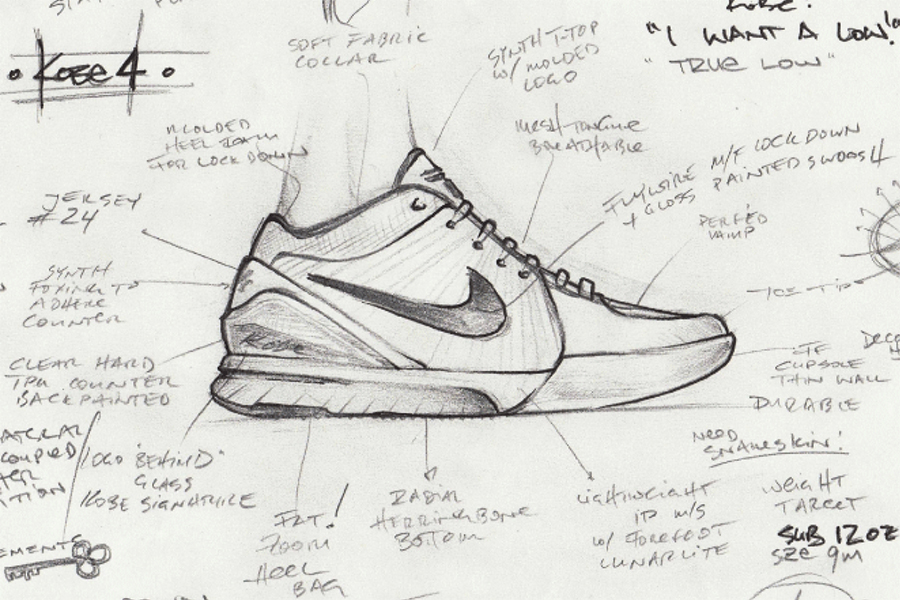 KOBE:
"I WANT A LOW!"
"TRUE LOW"
• KOBE 4 •
SOFT FABRIC
COLLAR
SYNTH T-TOP
W/ MOLDED
LOGO
MOLDED
HEEL FOAM
FOR LOCK DOWN
MESH TONGUE
BREATHABLE
FLYWIRE M/F LOCKDOWN
+ GLOSS PAINTED SWOOSH
PERF'ED
VAMP
JERSEY
#24
SYNTH
FOXING TO
ADHERE
COUNTER
TOE-TIP
CLEAR HARD
TPU COUNTER
BACKPAINTED
CUPSOLE
THIN WALL
DURABLE
KOBE
LOGO "BEHIND"
GLASS
KOBE SIGNATURE
NEED
SNAKESKIN!
FAT!
ZOOM
HEEL
BAG
RADIAL
HERRINGBONE
BOTTOM
LIGHTWEIGHT
IP M/S
W/ FOREFOOT
LUNARLITE
WEIGHT
TARGET
SUB 12 OZ
SZE 9M